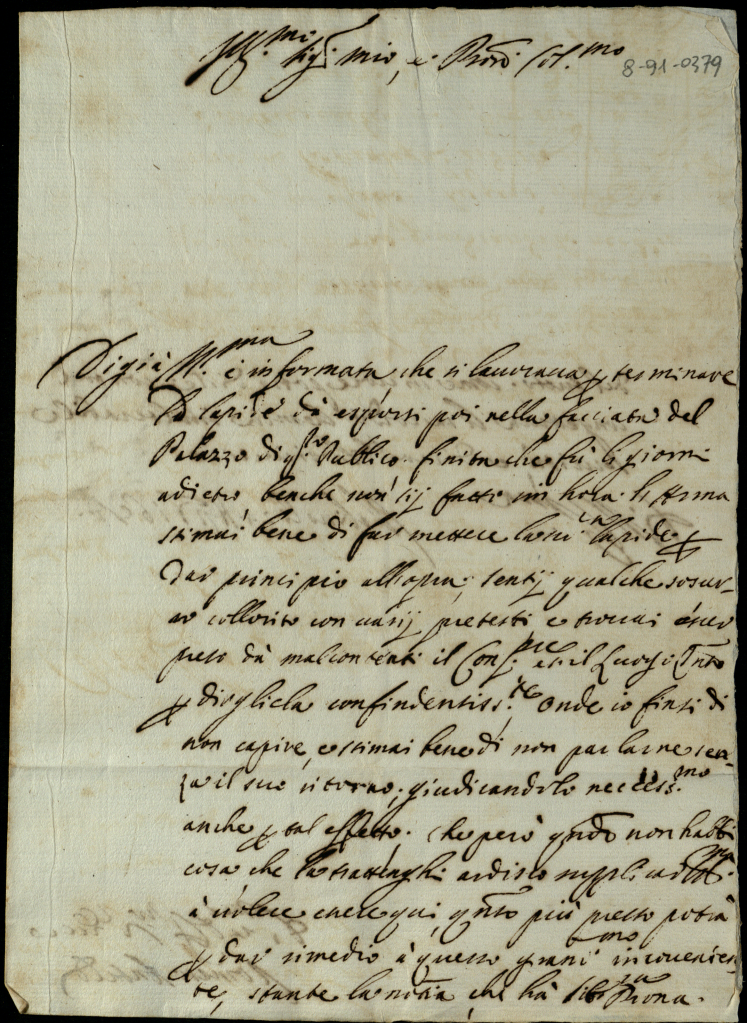 Ill.mo Sig.r mio, e Pron Col.mo
8-91-0379
Di già V.S. Ill.ma è informata che si lavorava p terminare
la lapide da esporsi poi nella facciata del
Palazzo di q.sto Publico. finita che fù li giorni
adietro benche non sij fatti in hora
stimai bene di far mettere la lapide p
dar principio all'opra; sentij qualche sosur-
ro collorito con varij pretesti e trovai esser
preso dà malcontenti il et il
p dirglicla confidentiss.te Onde io finsi di
non capire, e stimai bene di non parlarne sen-
za il suo ritorno, giudicandolo necess.mo
anche p tal effetto. che però q.ndo non habbi
cosa che la trattenghi ardisco supplicar V.S. Ill.ma
à volere esere qui, q.nto più presto potrà
p dar rimedio à questo gran.mo inconvenien-
te, stante la che hà